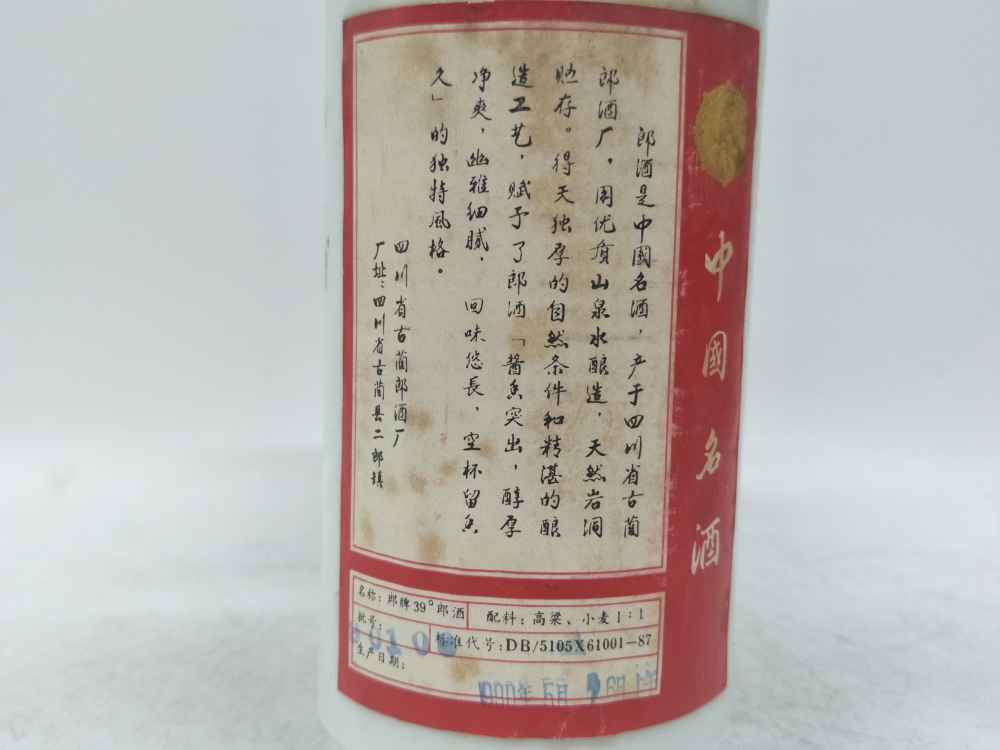 郎酒是中國名酒，产于四川省古蔺
郎酒厂。用优质山泉水酿造，天然岩洞
贮存。得天独厚的自然条件和精湛的酿
造工艺，赋予了郎酒「酱香突出，醇厚
净爽，幽雅细腻，回味悠長，空杯留香
久」的独特风格。
四川省古蔺郎酒厂
厂址：四川省古蔺县二郎镇
中國名酒
名称：郎牌39°郎酒
配料：高梁、小麦1：1
批号：
标准代号：DB/5105X61001—87
生产日期：
1990年